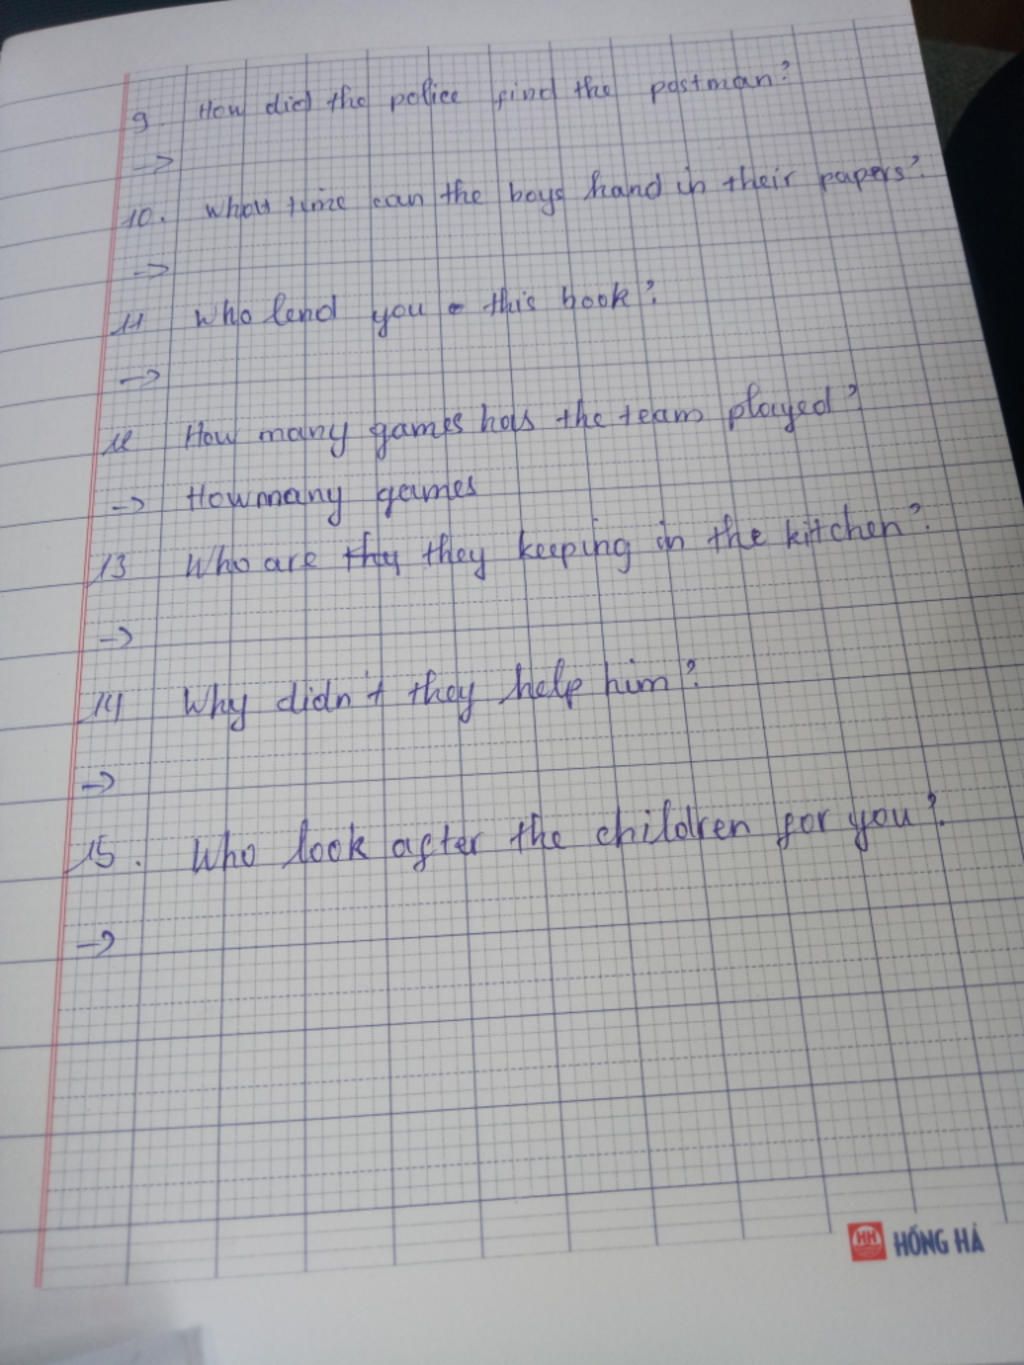 9. How did the police find the postman?
->
10. What time can the boys hand in their papers?
->
11 Who lend you this book?
->
12 How many games has the team played?
-> How many games
13 Who are they keeping in the kitchen?
->
14 Why didn't they help him?
->
15. Who look after the children for you?
->
HH HỒNG HÀ